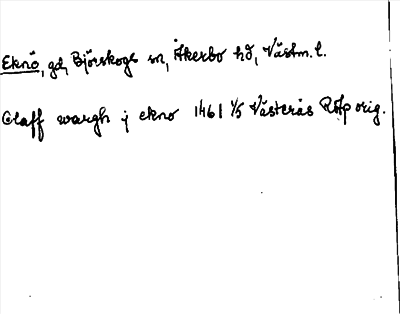 Eknö, gd, Björskogs sn, Åkerbo hd, Västm.l.
Olaff wargh j ekno 1461 1/5 Västerås RAp orig.